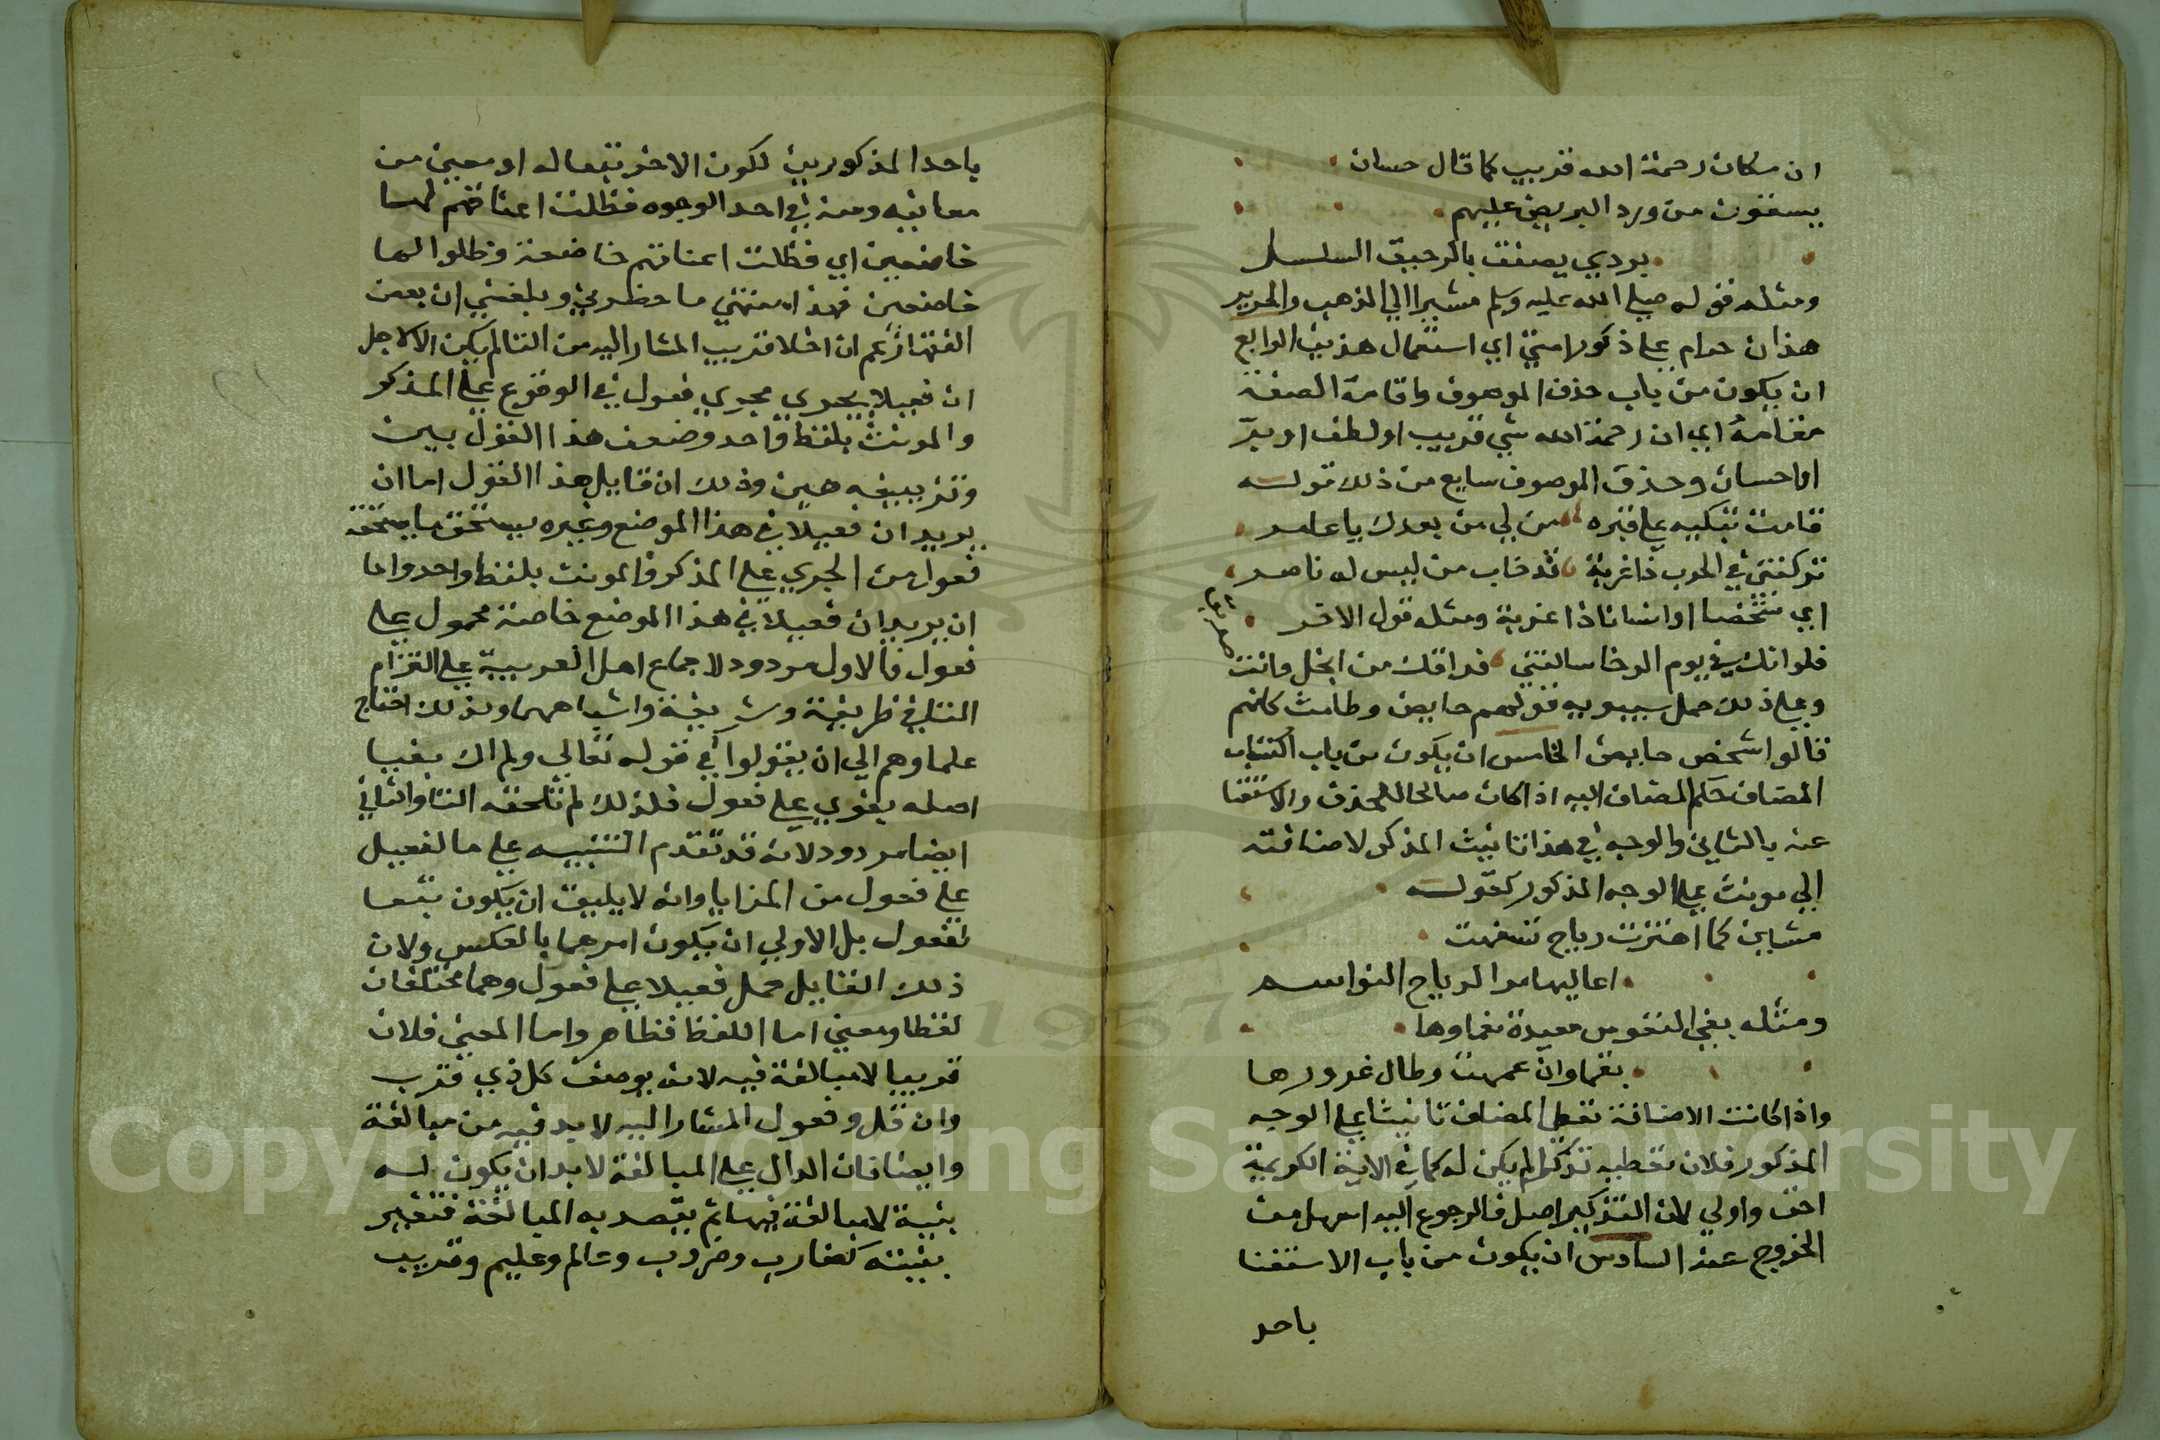 ان مكان رحمة الله قريب كما قال حسان
يسقون من ورد البريص عليهم
بردي يصفق بالرحيق السلسل
ومثله قوله صلى الله عليه وسلم مشيرا الي الذهب والحرير
هذان حرام علي ذكور امتي اي استعمال هذين الرابع
ان يكون من باب حذف الموصوف واقامة الصفة
مقامه اي ان رحمة الله شي قريب او لطف او بر
او احسان وحذف الموصوف سايع من ذلك قوله
قامت تبكيه علي قبره من لي من بعدك يا عامر
تركتني في الحرب ذا غربة قد خاب من ليس له ناصر
اي شخصا او انسانا ذا غربة ومثله قول الاخر
فلو انك في يوم الرخا سالتني فراقك من ابخل وانت
صديق
وعلي ذلك حمل سيبويه قولهم حايض وطامث كانهم
قالوا شخص حايض الخامس ان يكون من باب اكتساب
المضاف حكم المضاف اليه اذا كان صالحا للحذف والاستغنا
عنه بالثاني والوجه في هذا تانيث المذكر لاضافته
الي مونث علي الوجه المذكور كقوله
مشين كما اهتزت رياح تسفهت
اعاليها مر الرياح النواسم
ومثله بغي النفوس معيدة نعماوها
نقما وان عمهت وطال غرورها
واذا كانت الاضافة تعطي المضاف تانيثا علي الوجه
المذكور فلان تعطيه تذكيرا لم يكن له كما في الاية الكريمة
احق واولي لان التذكير اصل فالرجوع اليه اسهل من
الخروج عنه السادس ان يكون من باب الاستغنا
باحد
باحد المذكورين لكون الاخر تبعا له او معني من
معانيه ومنه في احد الوجوه فظلت اعناقهم لها
خاضعين اي فظلت اعناقهم خاضعة وظلوا لها
خاضعين فهذا منتهي ما حضرني وبلغني ان بعض
الفقها زعم ان اخلا قريب المشار اليه من التا لم يكن الا لاجل
ان فعيلا يجري مجري فعول في الوقوع علي المذكر
والمونث بلفظ واحد وضعف هذا القول بين
وتزييفه هين وذلك ان قايل هذا القول اما ان
يريد ان فعيلا في هذا الموضع وغيره يستحق ما يستحقه
فعول من الجري علي المذكر والمونث بلفظ واحد واما
ان يريد ان فعيلا في هذا الموضع خاصة محمول علي
فعول فالاول مردود لاجماع اهل العربية علي التزام
التا في ظريفة وشريفة واشباههما ولذلك احتاج
علماوهم الي ان يقولوا في قوله تعالي ولم اك بغيا
اصله بغوي علي فعول فلذلك لم تلحقه التا والثاني
ايضا مردود لانه قد تقدم التنبيه علي ما لفعيل
علي فعول من المزايا وانه لا يليق ان يكون تبعا
لفعول بل الاولي ان يكون امرهما بالعكس ولان
ذلك القايل حمل فعيلا علي فعول وهما مختلفان
لفظا ومعني اما اللفظ فظاهر واما المعني فلان
قريبا لا مبالغة فيه لانه يوصف كل ذي قرب
وان قل وفعول المشار اليه لا بد فيه من مبالغة
وايضا فان الدال علي المبالغة لا بد ان يكون له
بنية لا مبالغة فيها ثم يقصد به المبالغة فتغير
بنيته كضارب وضروب وعالم وعليم وقريب
Copyright © King Saud University
1957